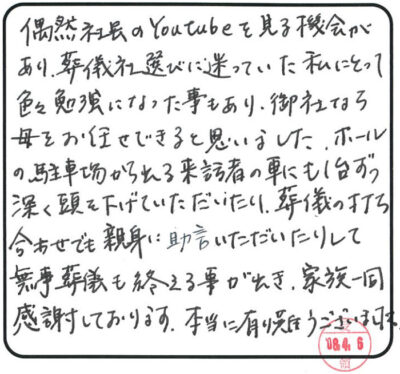 偶然社長のYoutubeを見る機会が
あり、葬儀社選びに迷っていた私にとって
色々勉強になった事もあり、御社なら
母をお任せできると思いました。ホール
の駐車場から出る来訪者の車にも1台ずつ
深く頭を下げていただいたり、葬儀の打ち
合わせでも親身に助言いただいたりして
無事葬儀も終える事が出き、家族一同
感謝しております。本当に有り難うございました。
18.4.6